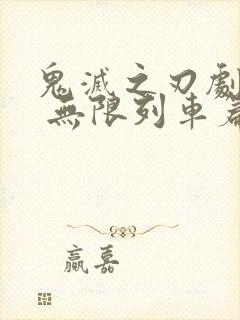 鬼滅之刃劇
無限列車篇
贏嘉